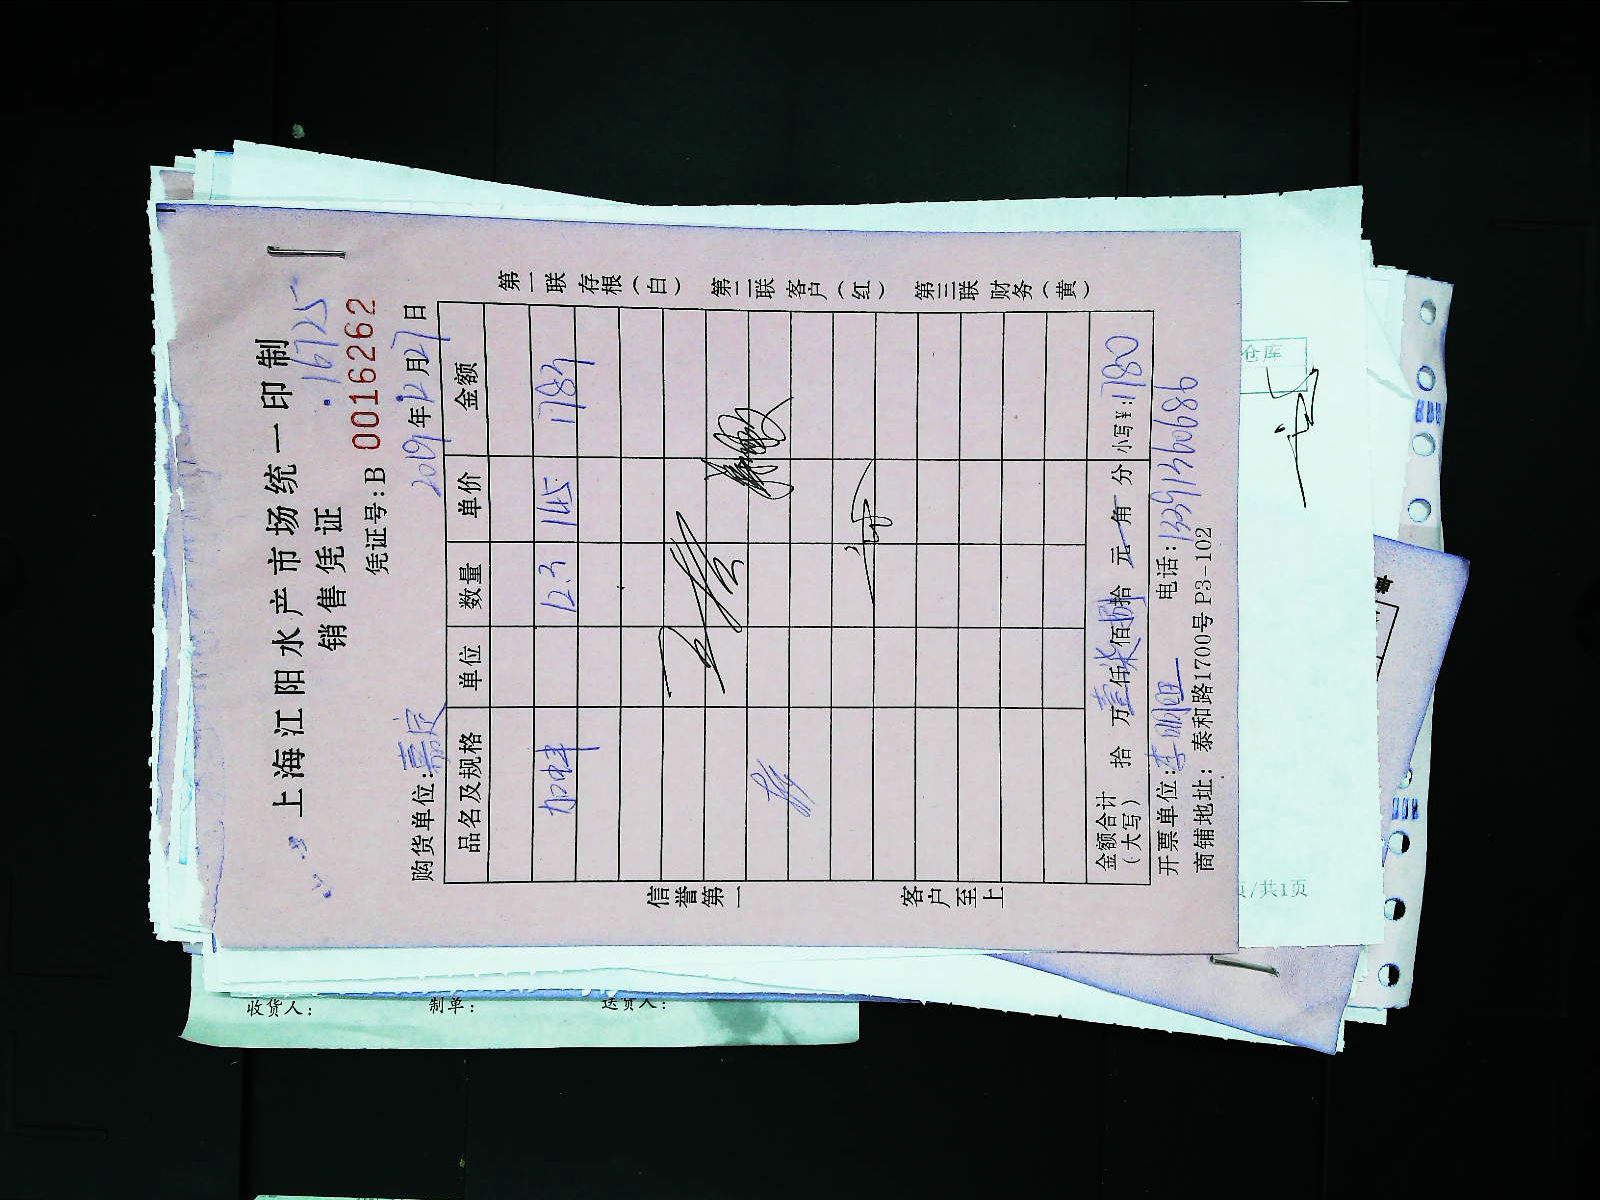 上海江阳水产市场统一印制
销售凭证
16725
凭证号:B 0016262
购货单位:嘉定 2019年12月27日
品名及规格 单位 数量 单价 金额
加蚌 12.3 145 1783
金额合计（大写） 拾 万壹仟柒佰捌拾 元 角 分 小写¥:1780
开票单位:李明旦 电话:13391360686
商铺地址: 泰和路1700号P3-102
第一联 存根（白） 第二联 客户（红） 第三联 财务（黄）
信誉第一
客户至上
仓库
页/共1页
收货人: 制单: 送货人: